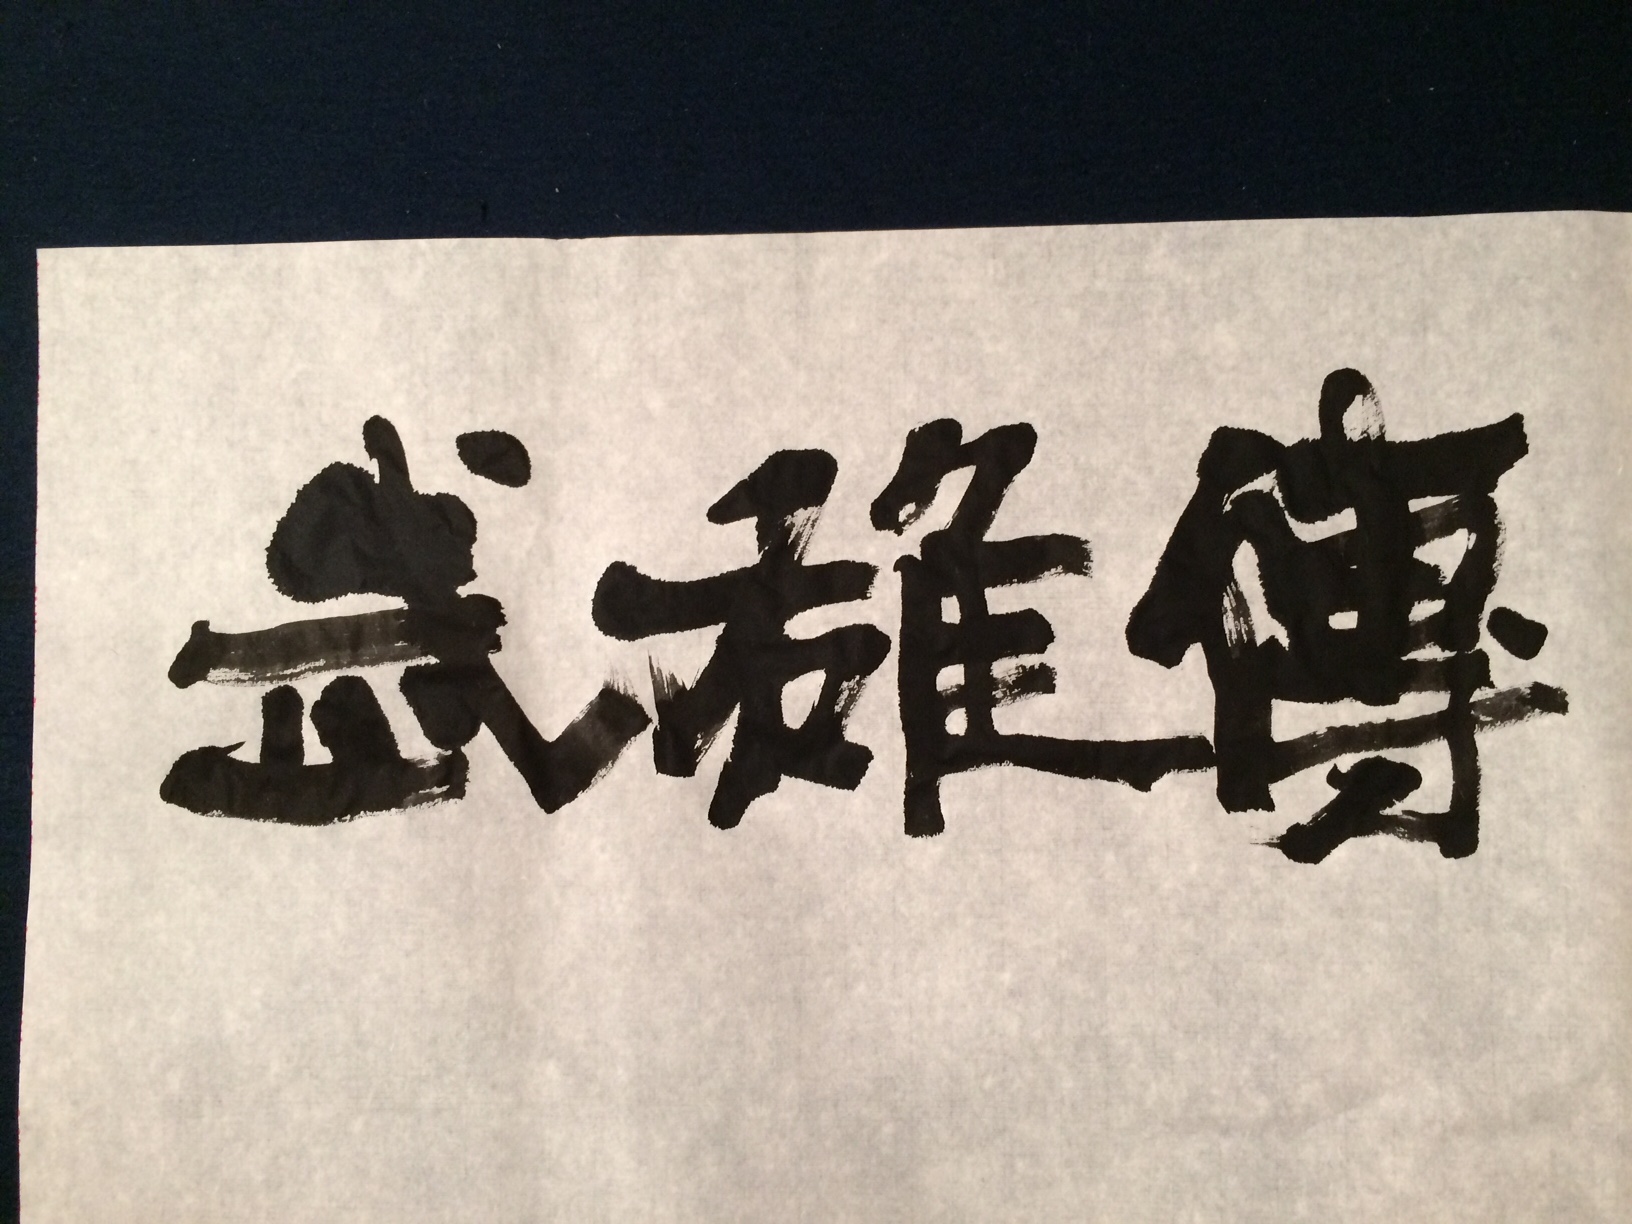 武雄傳